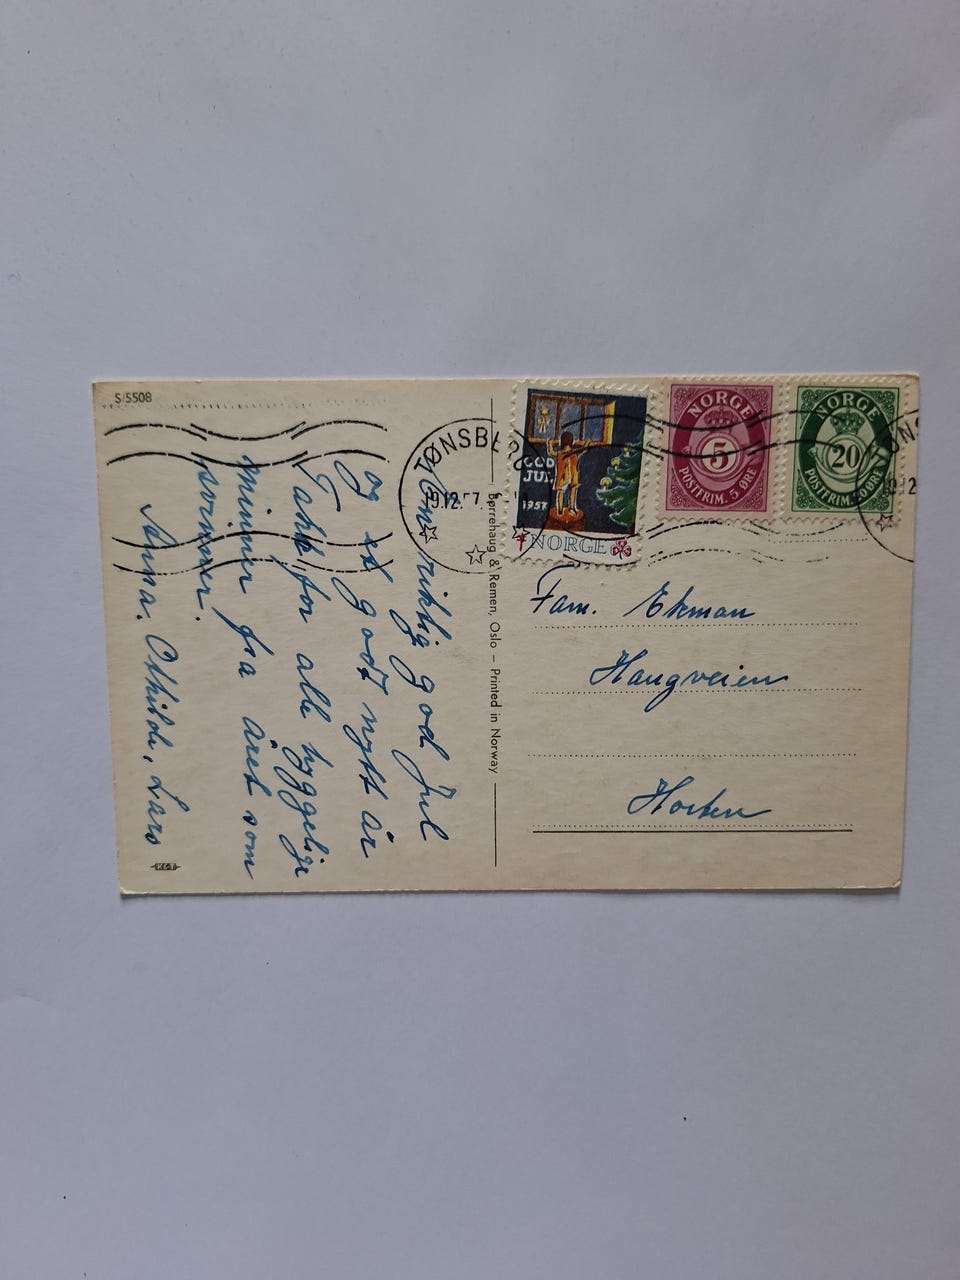 S/5508
TØNSBERG
GOD
JUL
1957
NORGE
NORGE
5
POSTFRIM. 5 ØRE
NORGE
20
POSTFRIM. 20 ØRE
TØNS
riktig god jul
og et godt nytt år
Takk for alle hyggelige
minner fra året som
svinner.
Anna. Othilde, Lars
KET
Børrehaug & Remen, Oslo – Printed in Norway
Fam. Ekman
Haugveien
Horten